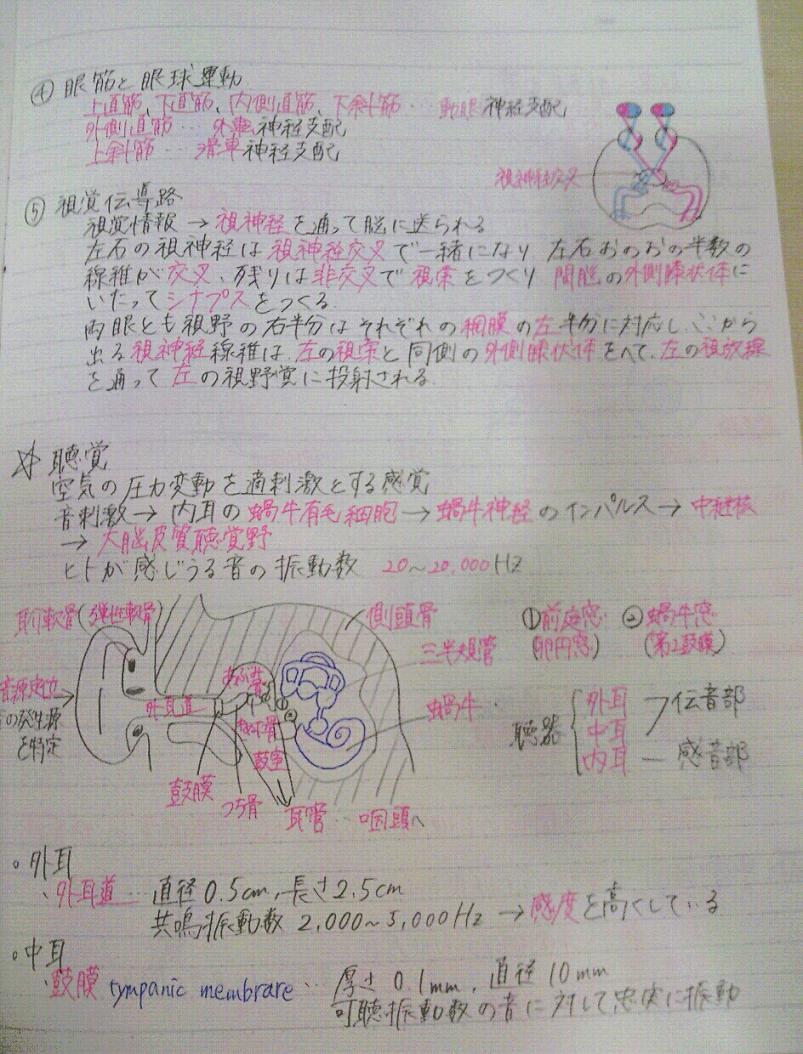 ④ 眼筋と眼球運動
上直筋、下直筋、内側直筋、下斜筋 … 動眼神経支配
外側直筋 … 外転神経支配
上斜筋 … 滑車神経支配
視神経交叉
⑤ 視覚伝導路
視覚情報 → 視神経を通って脳に送られる
左右の視神経は視神経交叉で一緒になり 左右おのおの半数の
線維が交叉、残りは非交叉で視索をつくり 間脳の外側膝状体に
いたってシナプスをつくる
両眼とも視野の右半分はそれぞれの網膜の左半分に対応し、ここから
出る視神経線維は、左の視索と同側の外側膝状体をへて、左の視放線
を通って左の視野覚に投射される
☆ 聴覚
空気の圧力変動を適刺激とする感覚
音刺激 → 内耳の蝸牛有毛細胞 → 蝸牛神経のインパルス → 中継核
→ 大脳皮質聴覚野
ヒトが感じうる音の振動数 20~20,000Hz
耳介軟骨(弾性軟骨)
側頭骨
①前庭窓
(卵円窓)
②蝸牛窓
(第2鼓膜)
三半規管
あぶみ骨
音源定位
の発生源
を特定
外耳道
きぬた骨
蝸牛
鼓室
鼓膜
つち骨
耳管 … 咽頭へ
聴器
外耳
中耳
伝音部
内耳 — 感音部
・外耳
・外耳道 … 直径0.5cm, 長さ2.5cm
共鳴振動数 2,000~5,000Hz → 感度を高くしている
・中耳
・鼓膜 tympanic membrare … 厚さ 0.1mm, 直径10mm
可聴振動数の音に対して忠実に振動